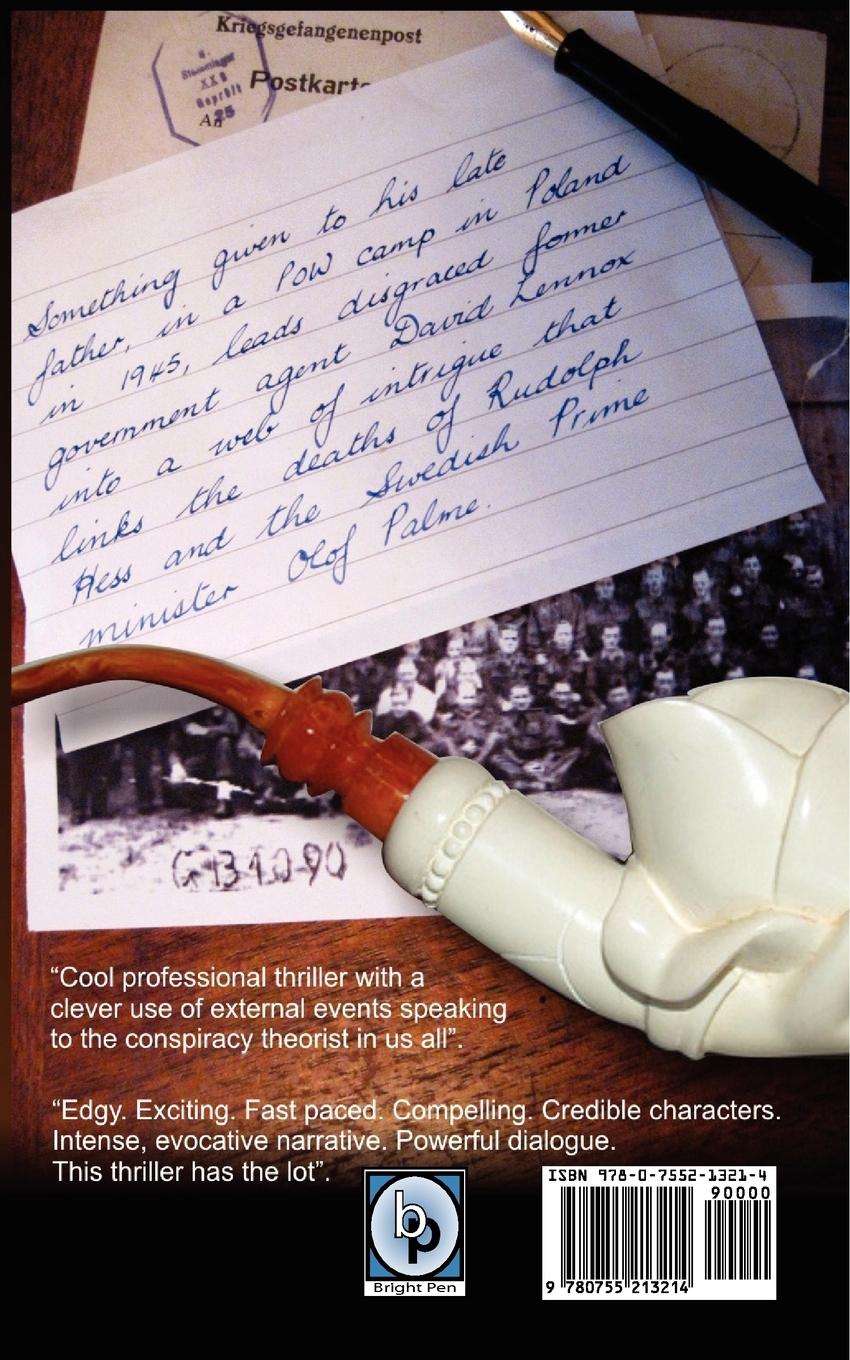 Kriegsgefangenenpost
Postkarte
Stammlager
XX B
Geprüft
25
An
Something given to his late
father, in a POW camp in Poland
in 1945, leads disgraced former
government agent David Lennox
into a web of intrigue that
links the deaths of Rudolph
Hess and the Swedish Prime
minister Olof Palme.
“Cool professional thriller with a
clever use of external events speaking
to the conspiracy theorist in us all”.
“Edgy. Exciting. Fast paced. Compelling. Credible characters.
Intense, evocative narrative. Powerful dialogue.
This thriller has the lot”.
bp
Bright Pen
ISBN 978-0-7552-1321-4
90000
9 780755 213214